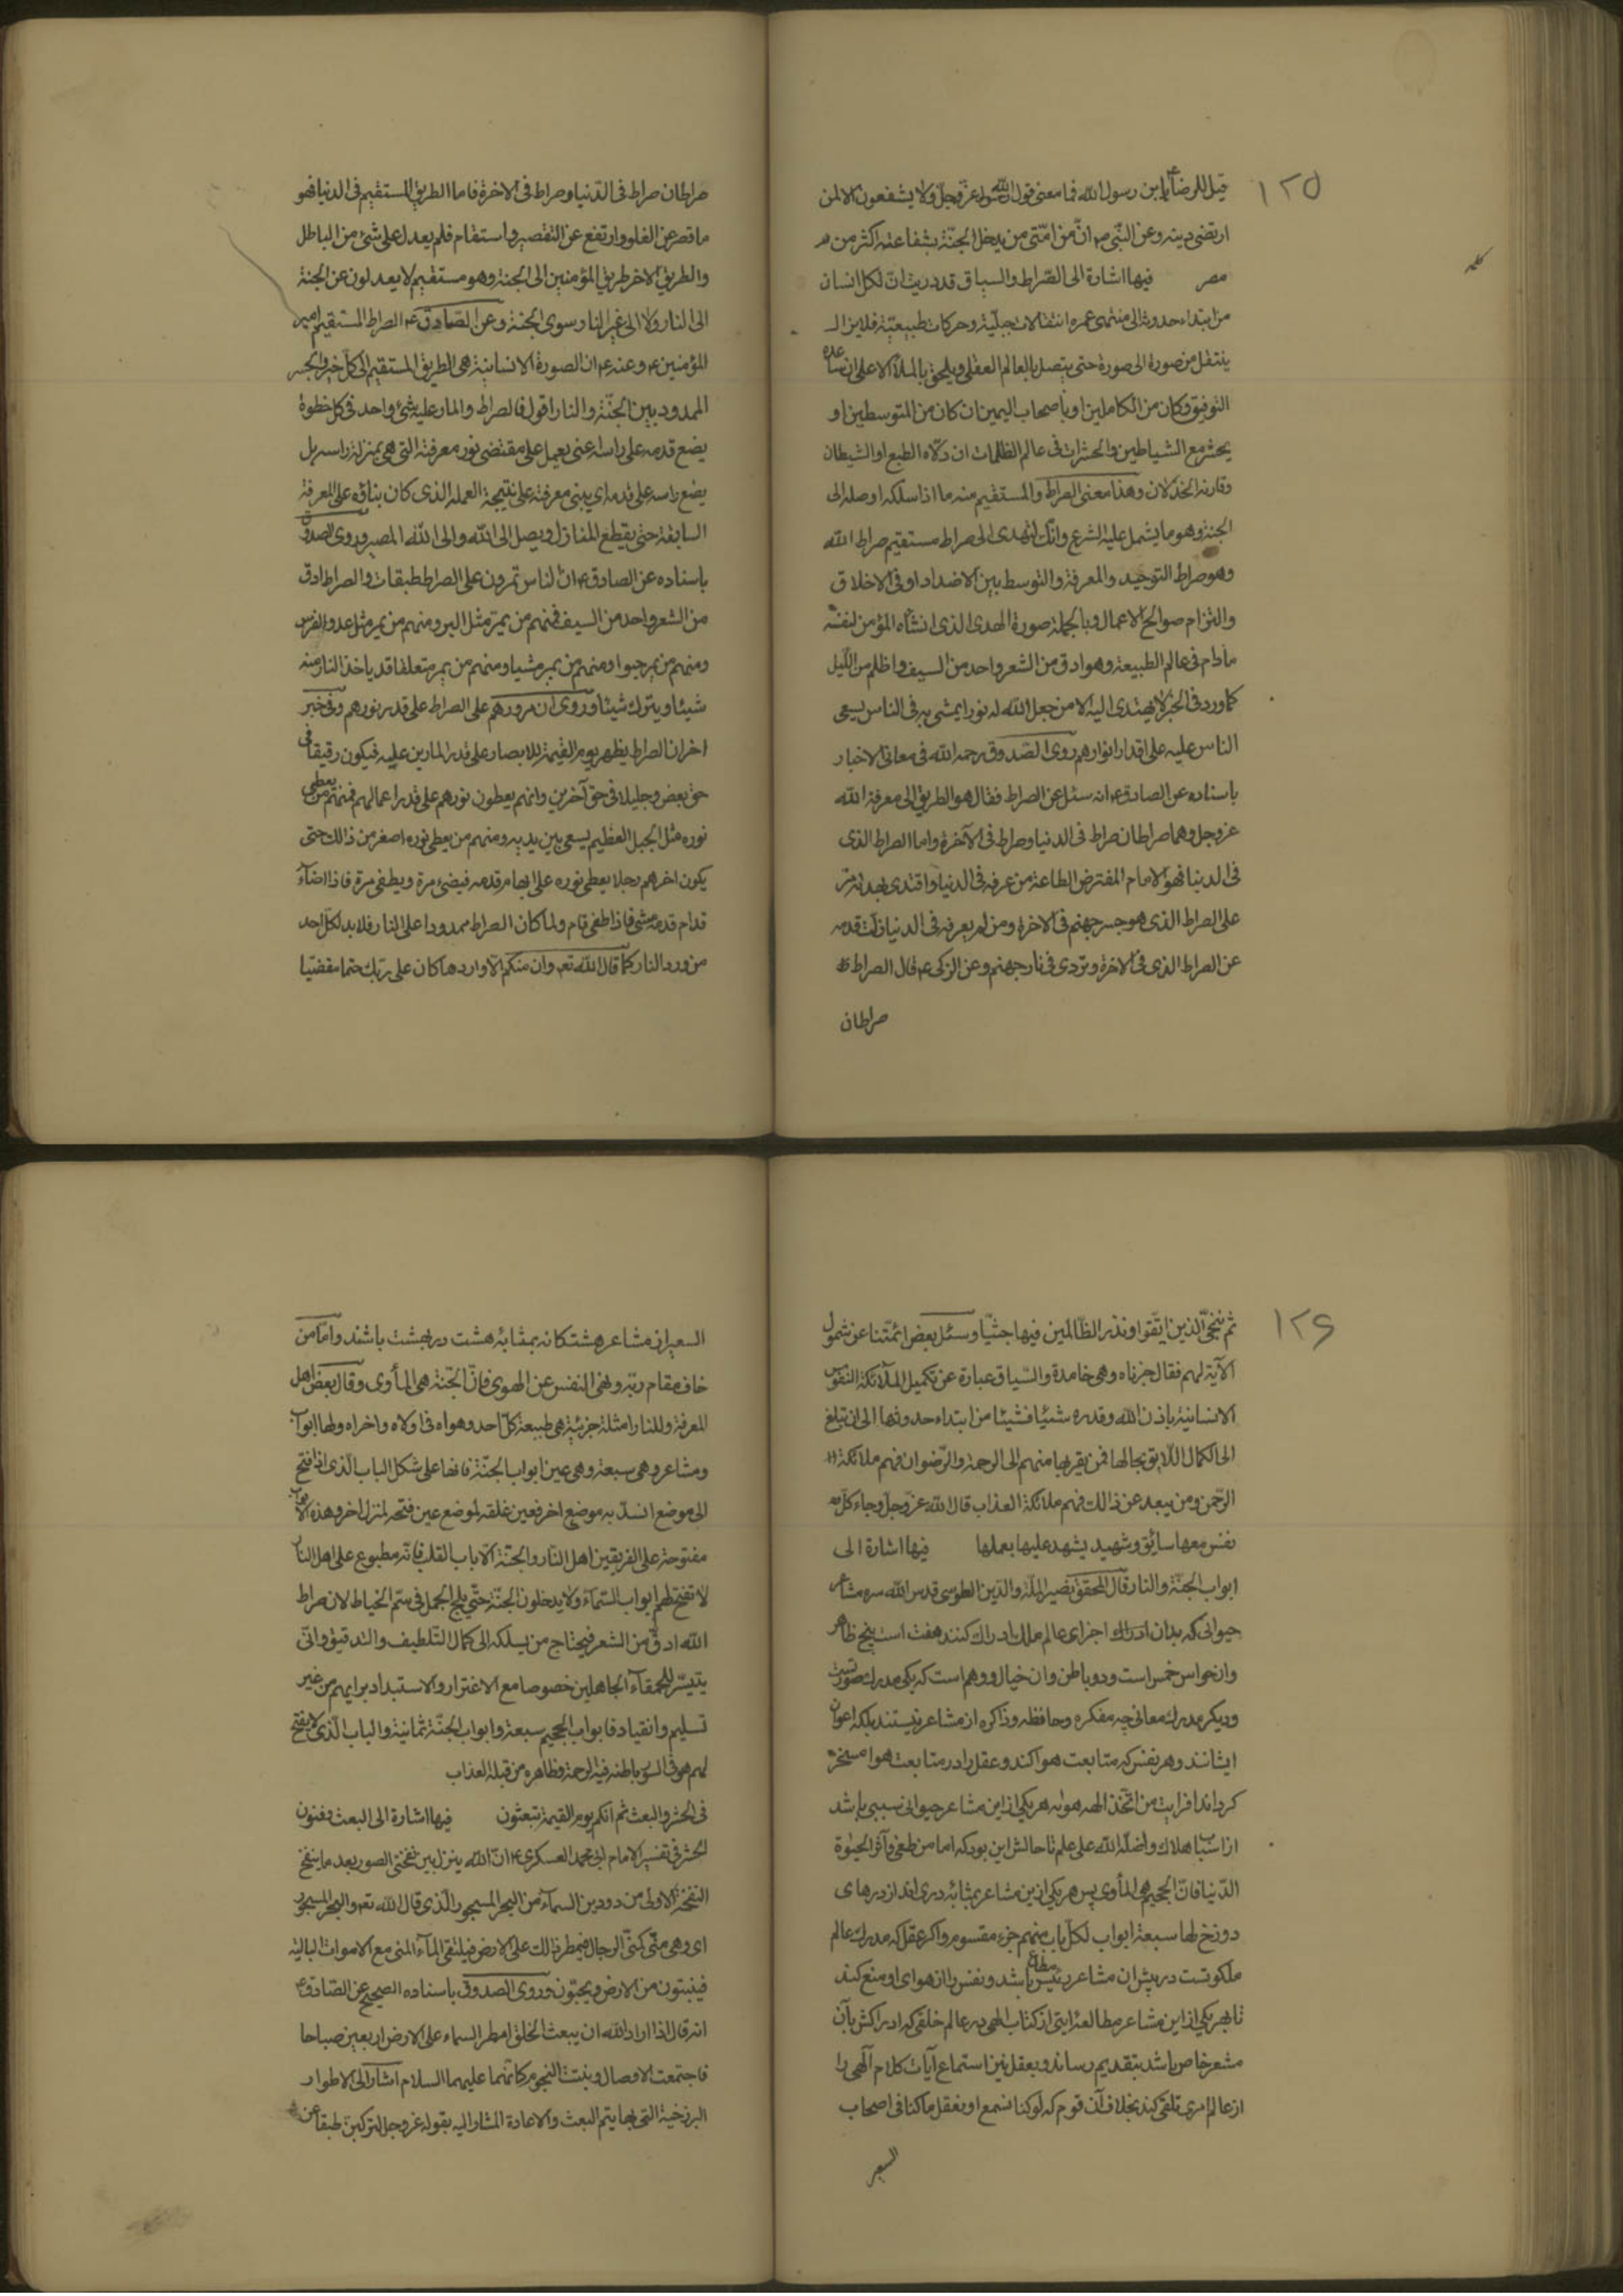 ١٢٥
قيل للرضا ع يا بن رسول الله فما معنى قول الله عز وجل ولا يشفعون الا لمن
ارتضى دينه وعن النبى ص ان من امتى من يدخل الجنة بشفاعته اكثر من
مضر فيها اشارة الى الصراط والسياق قد دريت ان لكل انسان
من ابتداء حدوثه الى منتهى عمره انتقالات جبلية وحركات طبيعية فلا يزال
ينتقل من صورة الى صورة حتى يتصل بالعالم العقلى ويلحق بالملأ الاعلى ان ساعده
التوفيق وكان من الكاملين او باصحاب اليمين ان كان من المتوسطين او
يحشر مع الشياطين والحشرات فى عالم الظلمات ان ولاه الطبع او الشيطان
وقارنه الخذلان وهذا معنى الصراط والمستقيم منه ما اذا سلكه اوصله الى
الجنة وهو ما يشمل عليه الشرع وانك لتهدى الى صراط مستقيم صراط الله
وهو صراط التوحيد والمعرفة والتوسط بين الاضداد او فى الاخلاق
والتزام صوالح الاعمال وبالجملة صورة الهدى الذى انشأه المؤمن لنفسه
مادام فى عالم الطبيعة وهو ادق من الشعر واحد من السيف واظلم من الليل
كما ورد فى الخبر لا يهتدى اليه الا من جعل الله له نورا يمشى به فى الناس يسعى
الناس عليه على اقدار انوارهم روى الصدوق رحمه الله فى معانى الاخبار
باسناده عن الصادق ع انه سئل عن الصراط فقال هو الطريق الى معرفة الله
عز وجل وهما صراطان صراط فى الدنيا وصراط فى الآخرة واما الصراط الذى
فى الدنيا فهو الامام المفترض الطاعة من عرفه فى الدنيا واقتدى بهداه مر
على الصراط الذى هو جسر جهنم فى الاخرة ومن لم يعرفه فى الدنيا زلت قدمه
عن الصراط الذى فى الاخرة وتردى فى نار جهنم وعن الزكى ع قال الصراط
صراطان
صراطان صراط فى الدنيا وصراط فى الاخرة فاما الطريق المستقيم فى الدنيا فهو
ما قصر عن الغلو وارتفع عن التقصير واستقام فلم يعدل على شئ من الباطل
والطريق الاخر طريق المؤمنين الى الجنة وهو مستقيم لا يعدلون عن الجنة
الى النار ولا الى غير النار سوى الجنة وعن الصادق ع الصراط المستقيم امير
المؤمنين ع وعنه ع ان الصورة الانسانية هى الطريق المستقيم الى كل خير والجسر
الممدود بين الجنة والنار اقول فالصراط والمار عليه شئ واحد فى كل خطوة
يضع قدمه على راسه اعنى يعمل على مقتضى نور معرفته التى هى بمنزلة راسه بل
يضع راسه على قدمه اى يبنى معرفته على نتيجة العمله الذى كان بناؤه على المعرفة
السابقة حتى يقطع المنازل ويصل الى الله والى الله المصير وروى الصدوق
باسناده عن الصادق ع ان الناس تمرون على الصراط طبقات والصراط ادق
من الشعر واحد من السيف فمنهم من يمر مثل البرق ومنهم من يمر مثل عدو الفرس
ومنهم من يمر حبوا ومنهم من يمر مشيا ومنهم من يمر متعلقا قد ياخذ النار منه
شيئا ويترك شيئا وروى ان مرورهم على الصراط على قدر نورهم وفى خبر
اخر ان الصراط يظهر يوم القيمة للابصار على قدر المارين عليه فيكون رقيقا فى
حق بعض وجليلا فى حق آخرين وانهم يعطون نورهم على قدر اعمالهم فمنهم من يعطى
نوره مثل الجبل العظيم يسعى بين يديه ومنهم من يعطى نوره اصغر من ذالك حتى
يكون اخرهم رجلا يعطى نوره على ابهام قدمه فيضئ مرة ويطفى مرة فاذا اضآء
قدام قدمه مشى فاذا طفى قام ولما كان الصراط ممدودا على النار فلا بد لكل احد
من ورد النار كما قال الله تعه وان منكم الا واردها كان على ربك حتما مقضيا
١٢٦
ثم ننجى الذين اتقوا ونذر الظالمين فيها جثيا وسئل بعض ائمتنا عن شمول
الآية لهم فقال جزناه وهى خامدة والسياق عبارة عن تكميل الملآئكة النفوس
الانسانية باذن الله وقدره شيئا فشيئا من ابتداء حدوثها الى ان تبلغ
الى الكمال اللايق بحالها فمن يقربها منهم الى الرحمة والرضوان فهم ملائكة
الرحمن ومن يبعد عن ذالك فهم ملائكة العذاب قال الله عز وجل وجاءت كل
نفس معها سائق وشهيد يشهد عليها بعملها فيها اشارة الى
ابواب الجنة والنار قال المحقق نصير الملة والدين الطوسى قدس الله سره مشاعر
حيوانى كه بدان ادراك اجزاى عالم ملك ادراك كنند هفت است پنج ظاهر
وان حواس خمس است ودو باطن وان خيال ووهم است كه يكى مدرك صورتست
وديگر مدرك معانى چه مفكره وحافظه وذاكره از مشاعر نيستند بلكه اعوان
ايشانند وهر نفس كه متابعت هوا كند وعقل را در متابعت هوا مسخر
كرداند افرايت من اتخذ الهه هواه هر يكى از اين مشاعر حيوانى سببى باشد
از اسباب هلاك واضله الله على علم تا حالش اين بود كه اما من طغى وآثر الحيوة
الدنيا فان الجحيم هى المأوى پس هر يكى از ين مشاعر بمثابه درى اند از درهاى
دوزخ لها سبعة ابواب لكل باب منهم جزء مقسوم واكر عقل كه مدرك عالم
ملكوتست در پيش ان مشاعر رئيس مطاع باشد ونفس را از هواى او منع كند
تا بهر يكى از اين مشاعر مطالعه ايتى از كتاب الهى در عالم خلقى كه ادراكش بآن
مشعر خاص باشد بتقديم رساند وبعقل نيز استماع آيات كلام آلهى را
از عالم امرى تلقى كند بخلاف آن قوم كه لو كنا نسمع او نعقل ما كنا فى اصحاب
السعير
السعير اين مشاعر هشتكانه بمثابه هشت در بهشت باشند واما من
خاف مقام ربه ونهى النفس عن الهوى فان الجنة هى المأوى وقال بعض اهل
المعرفة وللنار امثلة جزئية هى طبيعة كل احد وهواه فى اولاه واخراه ولها ابواب
ومشاعر وهى سبعة وهى عين ابواب الجنة فانها على شكل الباب الذى اذا فتح
الى موضع انسد به موضع اخر فعين غلقه لموضع عين فتحه لمنزل اخر وهذه الابواب
مفتوحة على الفريقين اهل النار والجنة الا باب القلب فانه مطبوع على اهل النار
لا تفتح لهم ابواب السمآء ولا يدخلون الجنة حتى يلج الجمل فى سم الخياط لان صراط
الله ادق من الشعر فيحتاج من يسلكه الى كمال التلطيف والتدقيق وانى
يتيسر للحمقآء الجاهلين خصوصا مع الاغترار والاستبداد برايهم من غير
تسليم وانقياد فابواب الجحيم سبعة وابواب الجنة ثمانية والباب الذى لا يفتح
لهم هو فى السور باطنه فيه الرحمة وظاهره من قبله العذاب
فى الحشر والبعث ثم انكم يوم القيمة تبعثون فيها اشارة الى البعث وفنون
الحشر فى تفسير الامام ابى محمد العسكرى ع ان الله ينزل بين نفختى الصور بعد ما ينفخ
النفخة الاولى من دوين السمآء من البحر المسجور الذى قال الله تعه والبحر المسجور
اى وهى منى كمنى الرجال فيمطر ذالك على الارض فيلتقى المآء المنى مع الاموات البالية
فينبتون من الارض ويحيون وروى الصدوق باسناده الصحيح عن الصادق ع
انه قال اذا اراد الله ان يبعث الخلق امطر السماء على الارض اربعين صباحا
فاجتمعت الاوصال ونبتت اللحوم وكانهما عليهما السلام اشارا الى الاطوار
البرزخية التى بها يتم البعث والاعادة المشار اليه بقوله عز وجل لتركبن طبقا عن